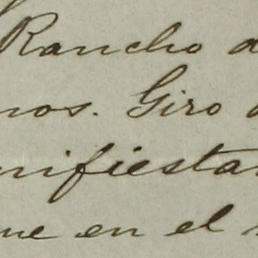 Rancho d
nos. Giro
nifiestan
ue en el